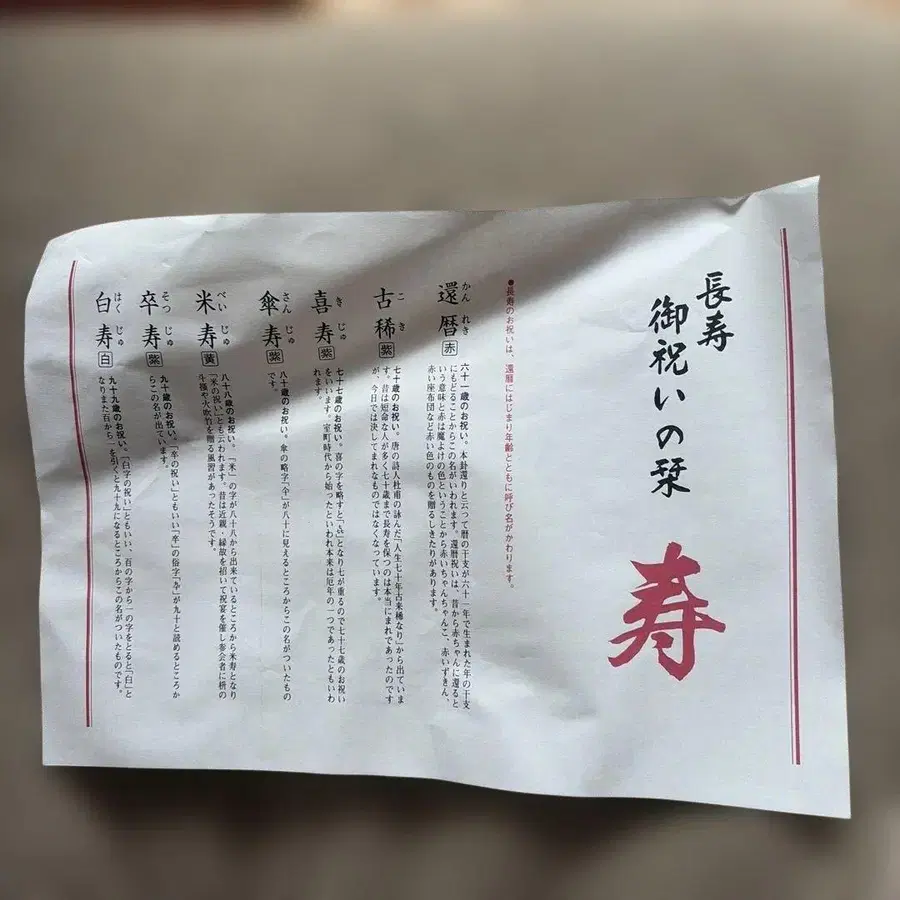 長寿
御祝いの栞
寿
●長寿のお祝いは、還暦にはじまり年齢とともに呼び名がかわります。
還暦 かんれき 赤
六十一歳のお祝い。本卦還りと云って暦の干支が六十一年で生まれた年の干支
にもどることからこの名がいわれます。還暦祝いは、昔から赤ちゃんに還ると
いう意味と赤は魔よけの色ということから赤いちゃんちゃんこ、赤いずきん、
赤い座布団など赤い色のものを贈るしきたりがあります。
古稀 こき 紫
七十歳のお祝い。唐の詩人杜甫の詠んだ「人生七十年古来稀なり」から出ていま
す。昔は短命な人が多く七十歳まで長寿を保つのは本当にまれであったのです
が、今日では決してまれなものではなくなっています。
喜寿 きじゅ 紫
七十七歳のお祝い。喜の字を略すと「㐂」となり七が重るので七十七歳のお祝い
をいいます。室町時代から始ったといわれ本来は厄年の一つであったともいわ
れます。
傘寿 さんじゅ 紫
八十歳のお祝い。傘の略字「仐」が八十に見えるところからこの名がついたもの
です。
米寿 べいじゅ 黄
八十八歳のお祝い。「米」の字が八十八から出来ているところから米寿となり
「米の祝い」とも云われます。昔は近親・縁故を招いて祝宴を催し参会者に枡の
斗掻や火吹竹を贈る風習があったそうです。
卒寿 そつじゅ 紫
九十歳のお祝い。「卒の祝い」ともいい「卒」の俗字「卆」が九十と読めるところか
らこの名が出ています。
白寿 はくじゅ 白
九十九歳のお祝い、「白字の祝い」ともいい、百の字から一の字をとると「白」と
なりまた百から一を引くと九十九になるところからこの名がついたものです。